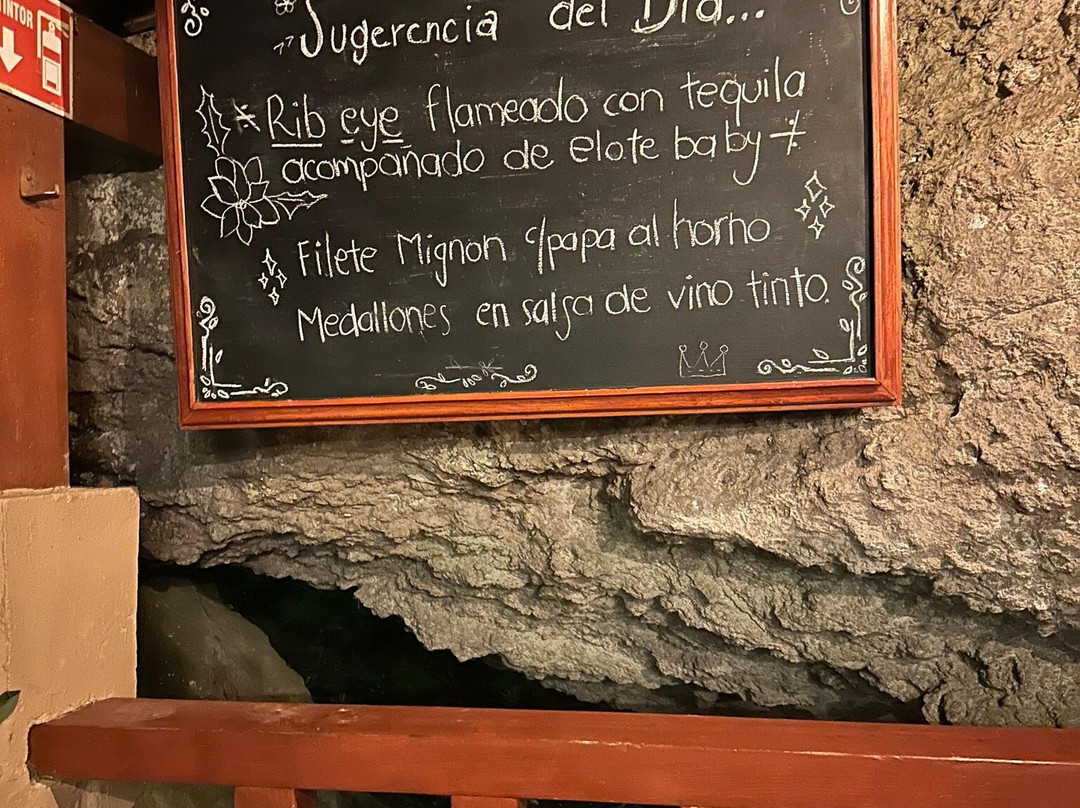 INTOR
Sugerencia del Día...
* Rib eye flameado con tequila
acompañado de elote baby
Filete Mignon c/papa al horno
Medallones en salsa de vino tinto.